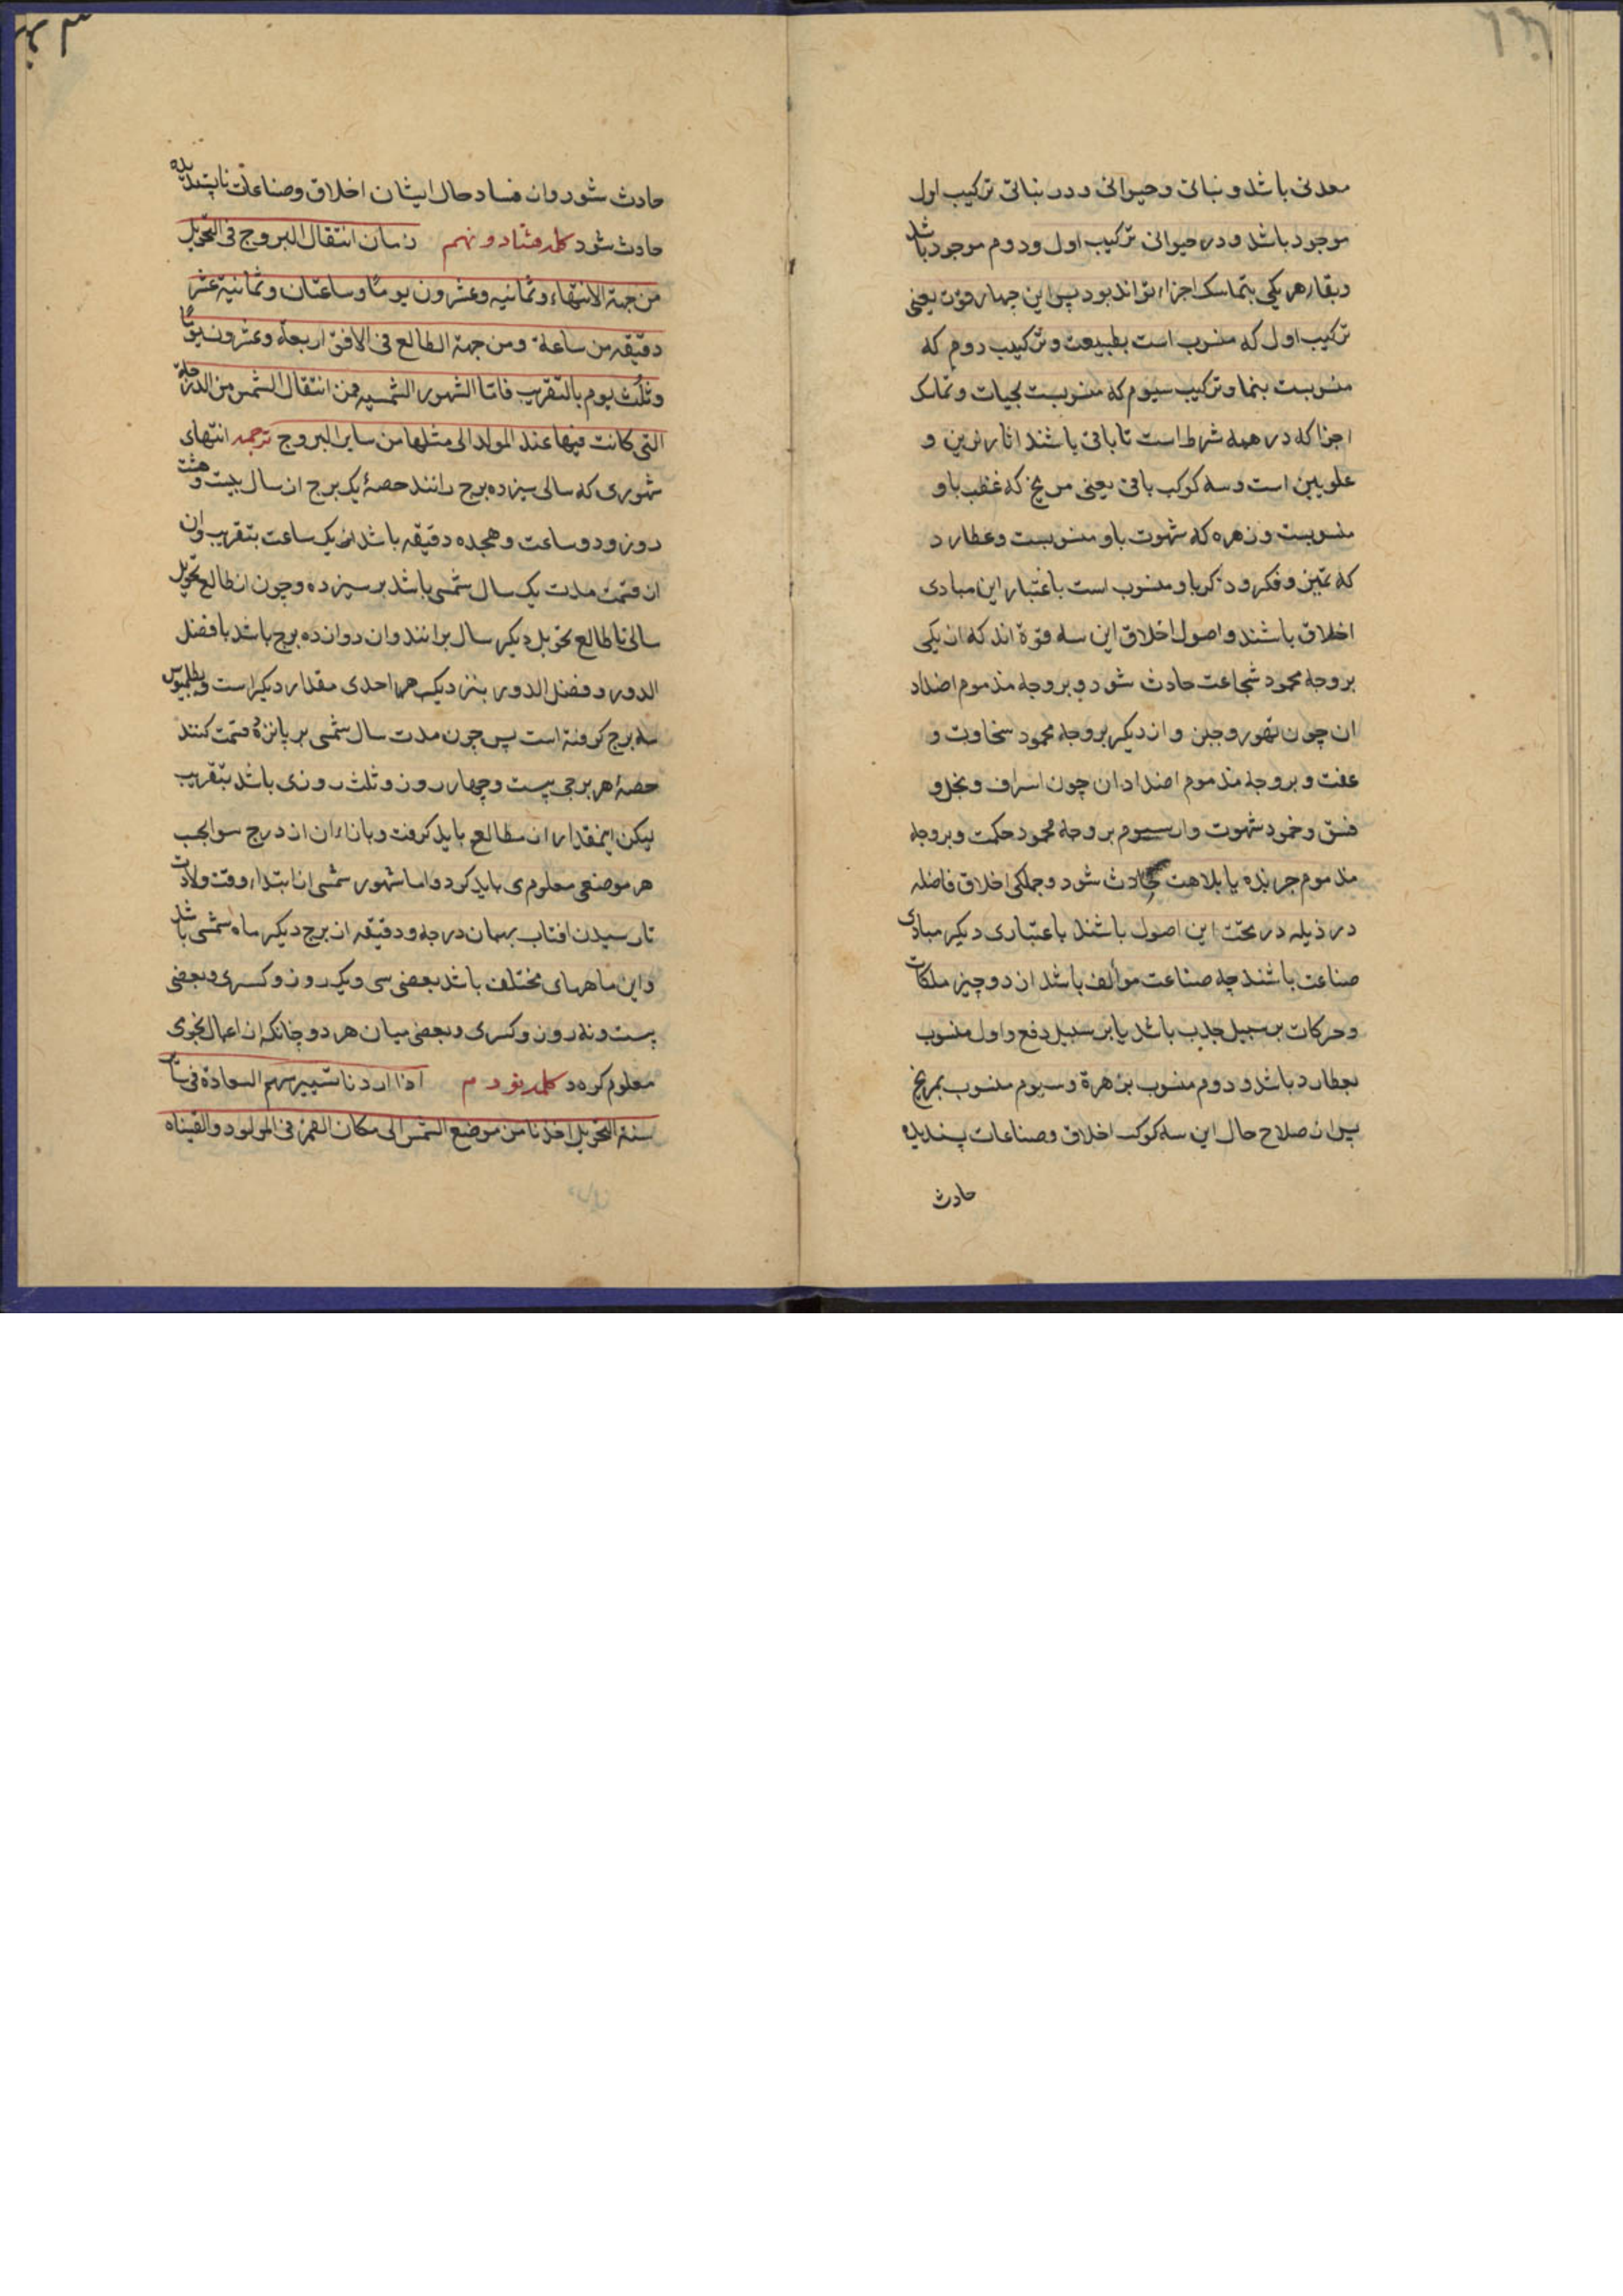 معدنی باشد و نباتی و حیوانی و در نباتی ترکیب اول
موجود باشد و در حیوانی ترکیب اول و دوم موجود باشد
و بقاء هر یکی بتماسک اجزاء تواند بود پس این چهار قوت یعنی
ترکیب اول که منسوب است بطبیعت و ترکیب دوم که
منسوبست بنما و ترکیب سیوم که منسوبست بحیات و تماسک
اجزا که در همه شرط است تا باقی باشند اثار نرین و
علویین است و سه کوکب باقی یعنی مریخ که غضب باو
منسوبست و زهره که شهوت باو منسوبست و عطارد
که تمیز و فکر و ذکر باو منسوب است باعتبار این مبادی
اخلاق باشند و اصول اخلاق این سه قوة اند که از یکی
بر وجه محمود شجاعت حادث شود و بر وجه مذموم اضداد
ان چون تهور و جبن و از دیگر بر وجه محمود سخاوت و
عفت و بر وجه مذموم اضداد ان چون اسراف و بخل و
فسق و خمود شهوت و از سیوم بر وجه محمود حکمت و بر وجه
مذموم جربزه یا بلاهت حادث شود و جملکی اخلاق فاضله
در ذیله در تحت این اصول باشند باعتباری دیگر مبادی
صناعت باشند چه صناعت موألف باشد از دو چیز ملکات
و حرکات بر سبیل جذب باشد یا بر سبیل دفع و اول منسوب
بعطارد باشد و دوم منسوب بزهرة و سیوم منسوب بمریخ
پس از صلاح حال این سه کوکب اخلاق و صناعات پسندیده
حادث
حادث شود و از فساد حال ایشان اخلاق و صناعات ناپسندیده
حادث شود کلمه هشتاد و نهم زمان انتقال البروج فی التحویل
من جهة الانتهاء و ثمانیه و عشرون یوما و ساعتان و ثمانیة عشر
دقیقه من ساعة و من جهة الطالع فی الافق اربعة و عشرون یوما
و ثلث یوم بالتقریب فاما الشهور الشمسیه فمن انتقال الشمس من الدرجة
التی کانت فیها عند المولد الی مثلها من سایر البروج ترجمه انتهای
شهوری که سالی سیزده برج رانند حصهٔ یک برج از سال بیست و هشت
روز و دو ساعت و هجده دقیقه باشد از یک ساعت بتقریب و ان
از قسمت مدت یک سال شمسی باشد بر سیزده و چون از طالع تحویل
سالی تا طالع تحویل دیگر سال برانند و ان دوازده برج باشد با فضل
الدور و فضل الدور بنزدیک هر احدی مقدار دیگر است و بطلمیوس
سه برج کرفته است پس چون مدت سال شمسی بر پانزده قسمت کنند
حصهٔ هر برجی بیست و چهار روز و ثلث روزی باشد بتقریب
لیکن اینمقدار از مطالع باید کرفت و بازاء ان از درج سوا بجب
هر موضعی معلوم می باید کرد و اما شهور شمسی از ابتداء وقت ولادت
تا رسیدن افتاب بهمان درجه و دقیقه از برج دیگر ماه شمسی باشد
و این ماههای مختلف باشد بعضی سی و یک روز و کسری و بعضی
بیست و نه روز و کسری و بعضی میان هر دو چنانکه از اعمال نجومی
معلوم گردد کلمه نودم اذا اردنا تسییر سهم السعادة فی ساير
سنة التحویل اخذنا من موضع الشمس الی مکان القمر فی المولود و القیناه